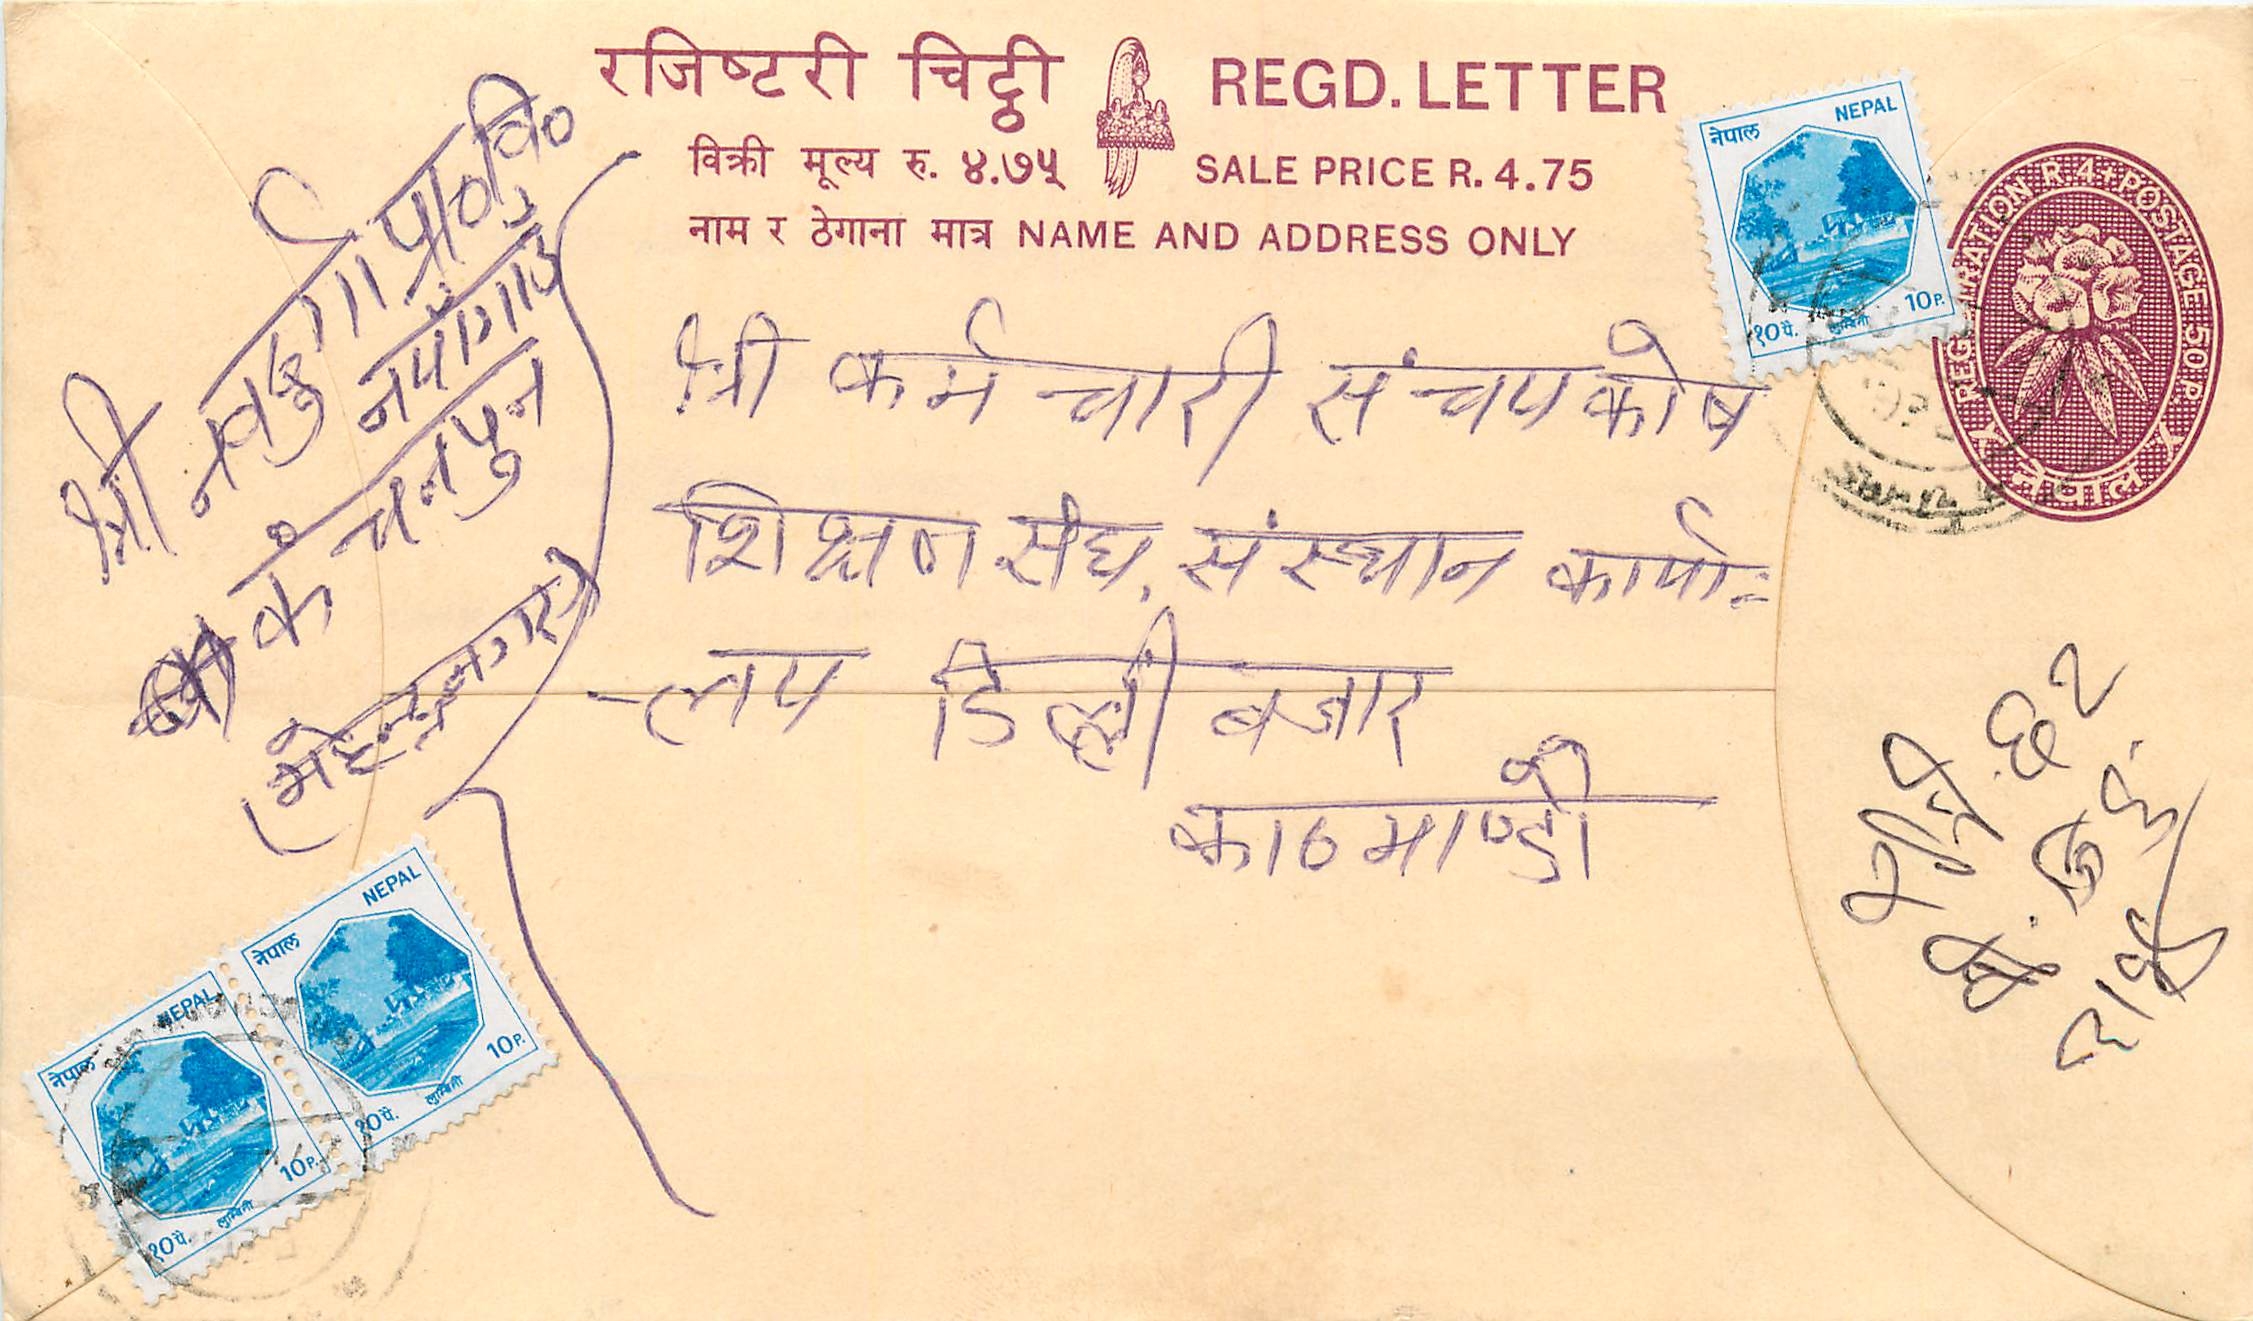 रजिष्टरी चिट्ठी REGD. LETTER
विक्री मूल्य रु. ४.७५ SALE PRICE R. 4.75
नाम र ठेगाना मात्र NAME AND ADDRESS ONLY
नेपाल NEPAL
१०पै. लुम्बिनी 10P.
REGISTRATION R. 4+POSTAGE 50 P.
नेपाल
श्री कर्मचारी संचयकोष
शिक्षण संघ, संस्थान कार्या-
लय डिल्ली बजार
काठमाण्डौ
श्री प्रा०वि०
कंचनपुर
(महेन्द्रनगर)
नेपाल NEPAL
१०पै. लुम्बिनी 10P.
नेपाल NEPAL
१०पै. लुम्बिनी 10P.